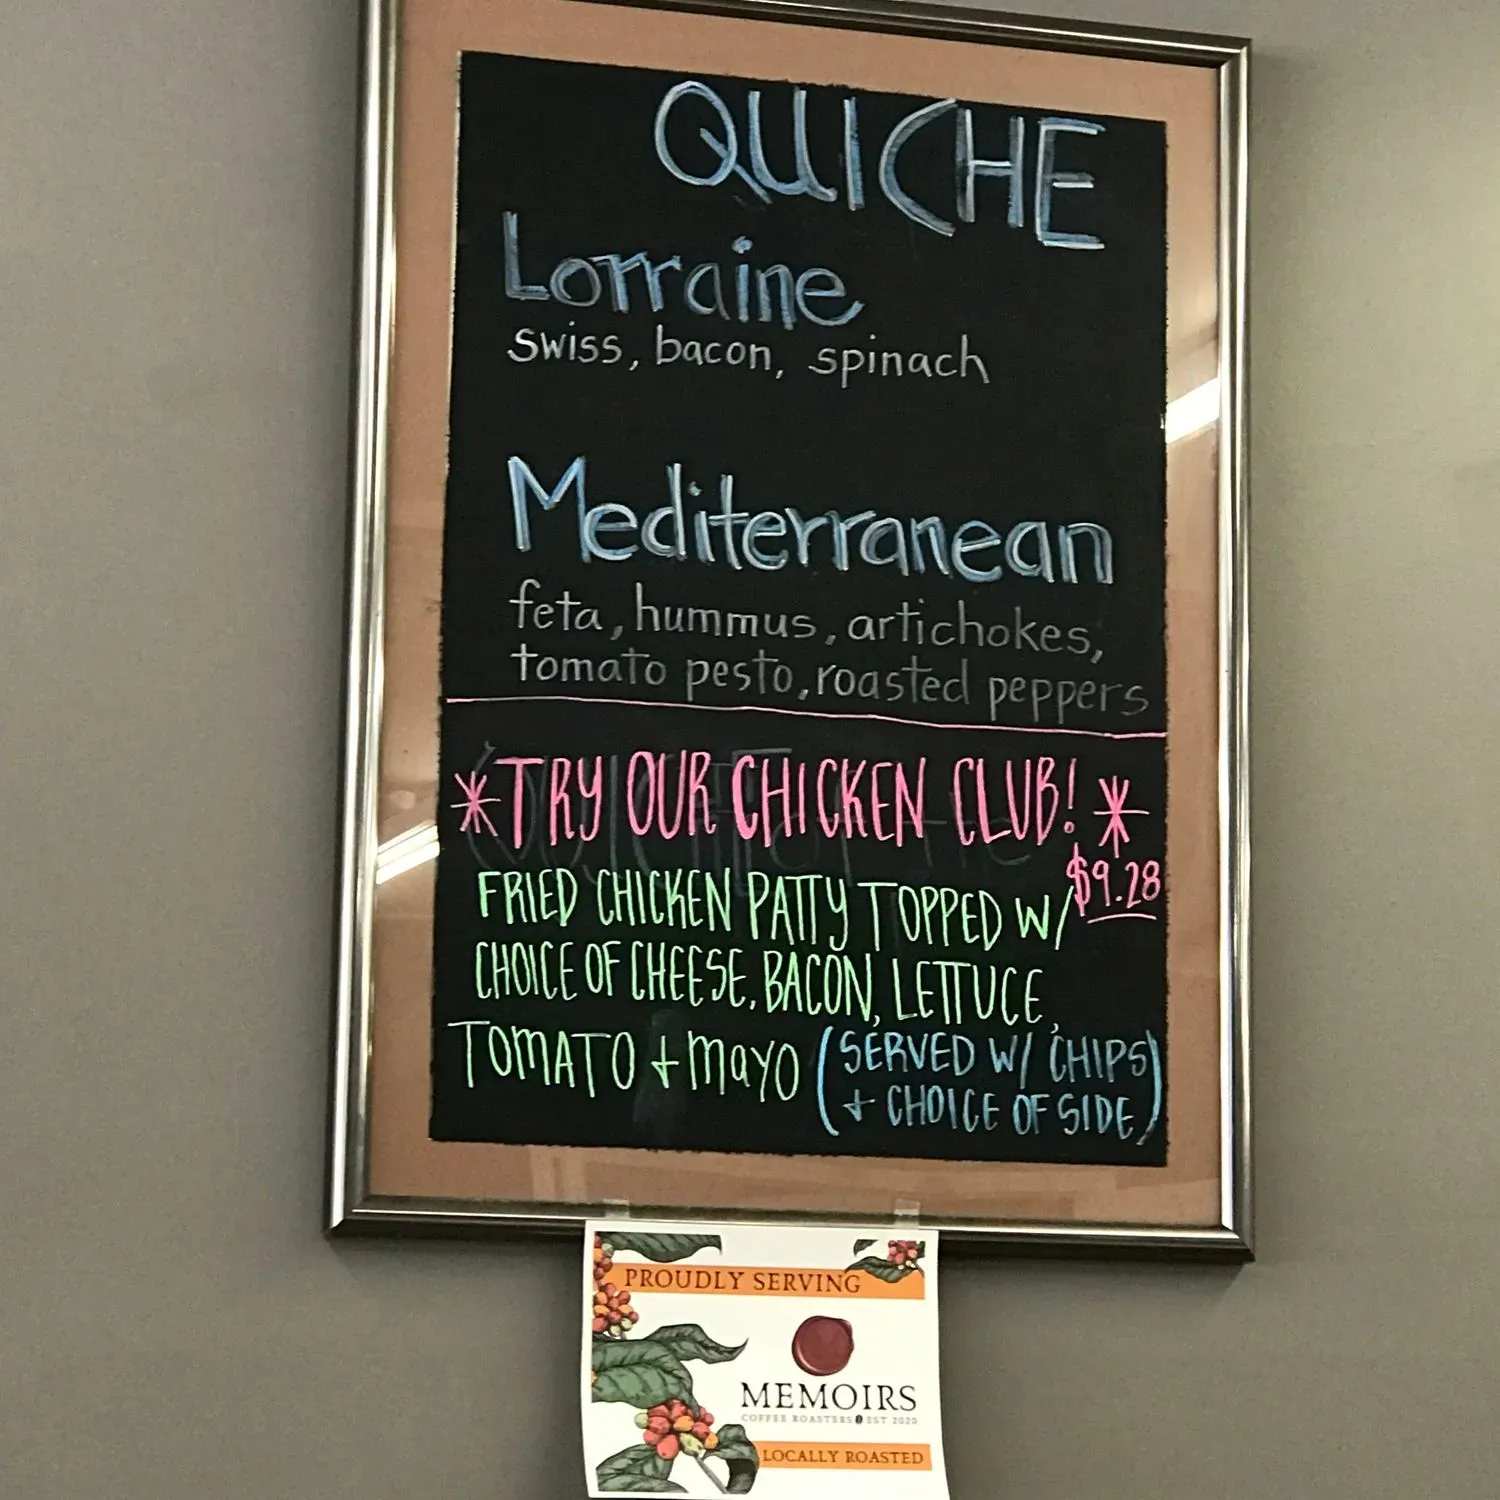 QUICHE
Lorraine
swiss, bacon, spinach
Mediterranean
feta, hummus, artichokes,
tomato pesto, roasted peppers
*TRY OUR CHICKEN CLUB!*
$9.28
FRIED CHICKEN PATTY TOPPED W/
CHOICE OF CHEESE, BACON, LETTUCE,
TOMATO + MAYO (SERVED W/ CHIPS
+ CHOICE OF SIDE)
PROUDLY SERVING
MEMOIRS
COFFEE ROASTERS EST 2020
LOCALLY ROASTED